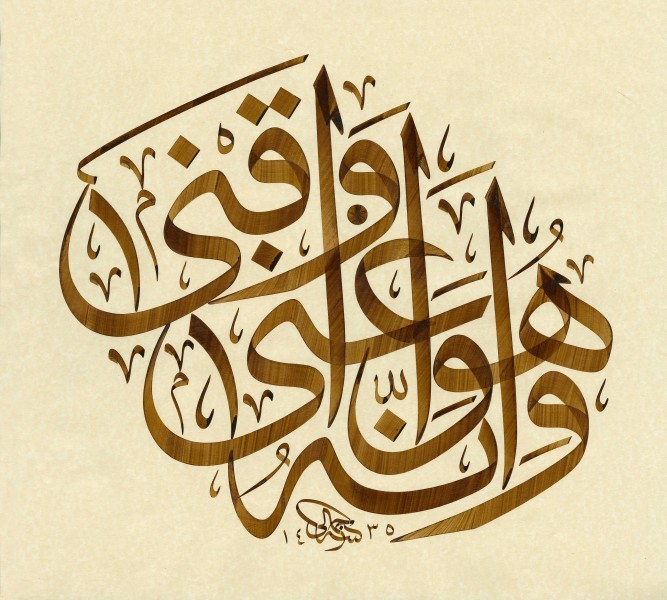 وَأَنَّهُ هُوَ أَغْنَىٰ وَأَقْنَىٰ
١٤٣٥